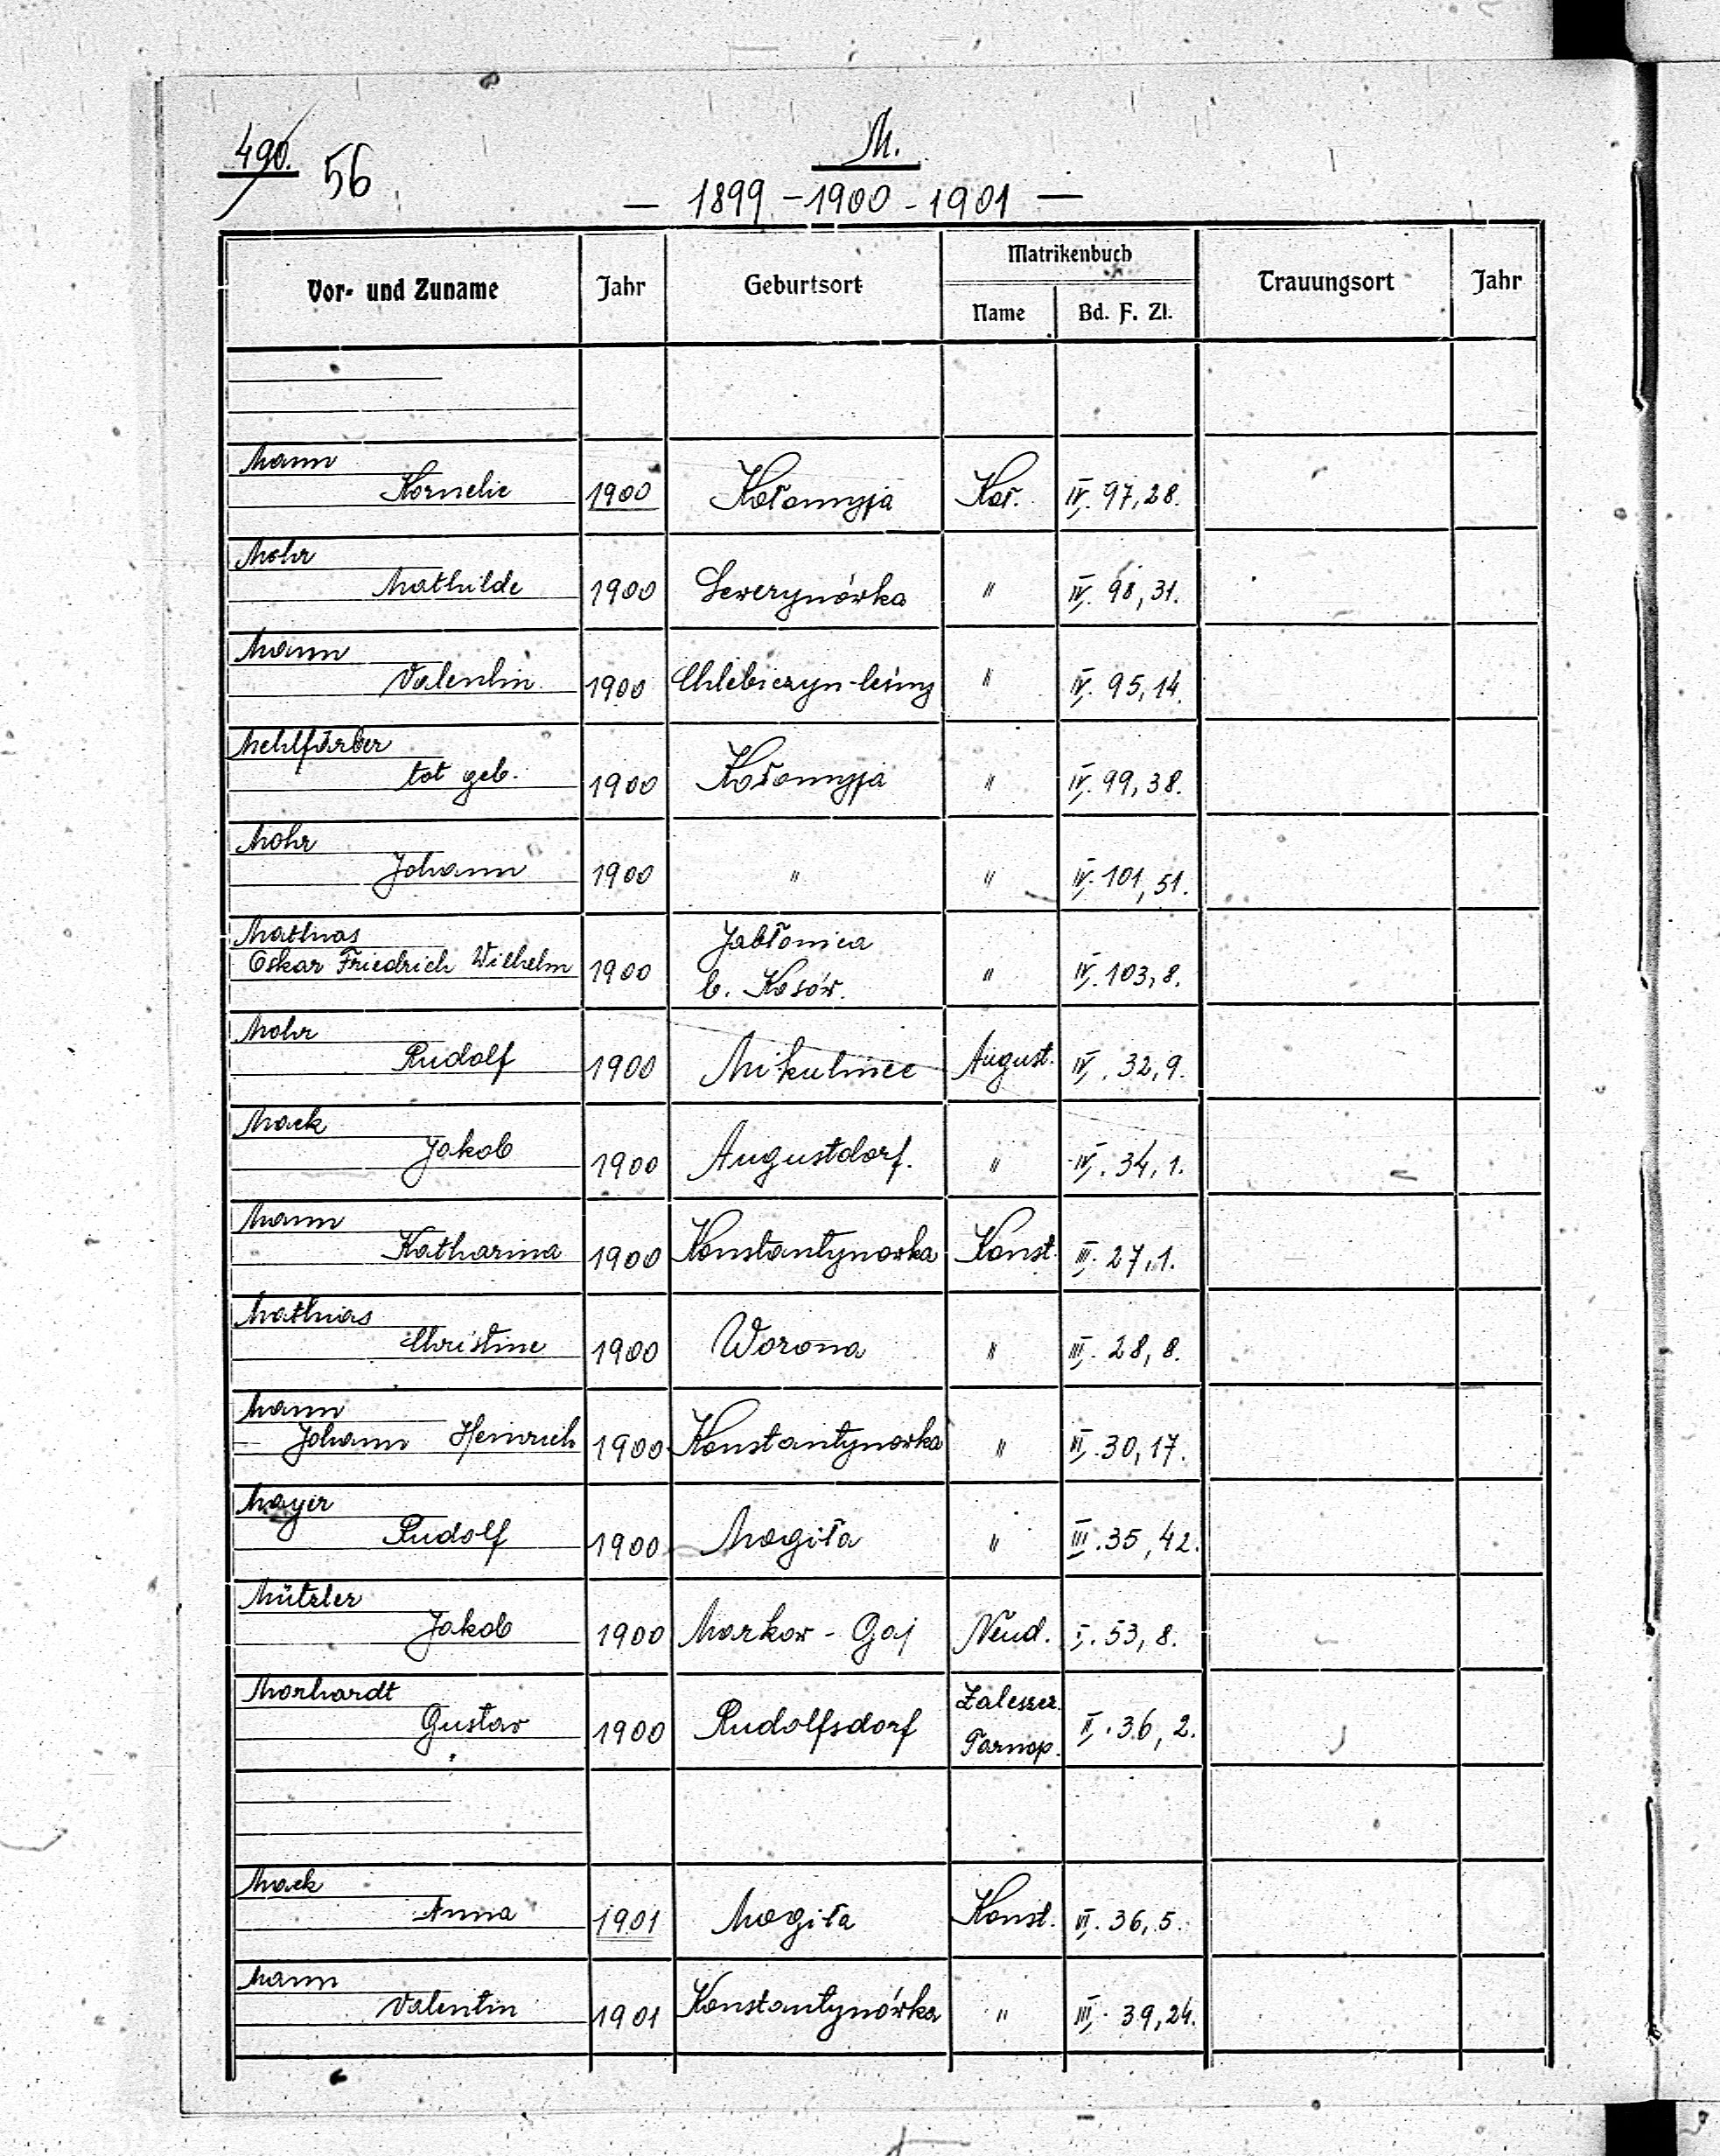 490. 56
M.
— 1899 - 1900 - 1901 —
Vor- und Zuname Jahr Geburtsort Matrikenbuch Trauungsort Jahr
Name Bd. F. Zl.
Mann
Kornelie 1900 Kołomyja Koł. IV. 97, 28.
Mohr
Mathilde 1900 Sewerynówka " IV. 98, 31.
Mann
Valentin 1900 Chlebiczyn-leśny " IV. 95, 14.
Mehlfärber
tot geb. 1900 Kołomyja " IV. 99, 38.
Mohr
Johann 1900 " " IV. 101, 51.
Mathias Jabłonica
Oskar Friedrich Wilhelm 1900 b. Kosów. " IV. 103, 8.
Mohr
Rudolf 1900 Mikulince August. IV. 32, 9.
Mack
Jakob 1900 Augustdorf. " IV. 34, 1.
Mann
Katharina 1900 Konstantynowka Konst. III. 27, 1.
Mathias
Christine 1900 Worona " III. 28, 8.
Mann
Johann Heinrich 1900 Konstantynowka " 30, 17.
Mayer
Rudolf 1900 Mogiła " III. 35, 42.
Mützler
Jakob 1900 Markow - Gaj Neud. I. 53, 8.
Morhardt Zaleszcz.
Gustav 1900 Rudolfsdorf Tarnop. II. 36, 2.
Mack
Anna 1901 Mogiła Konst. 36, 5.
Mann
Valentin 1901 Konstantynówka " III. 39, 24.